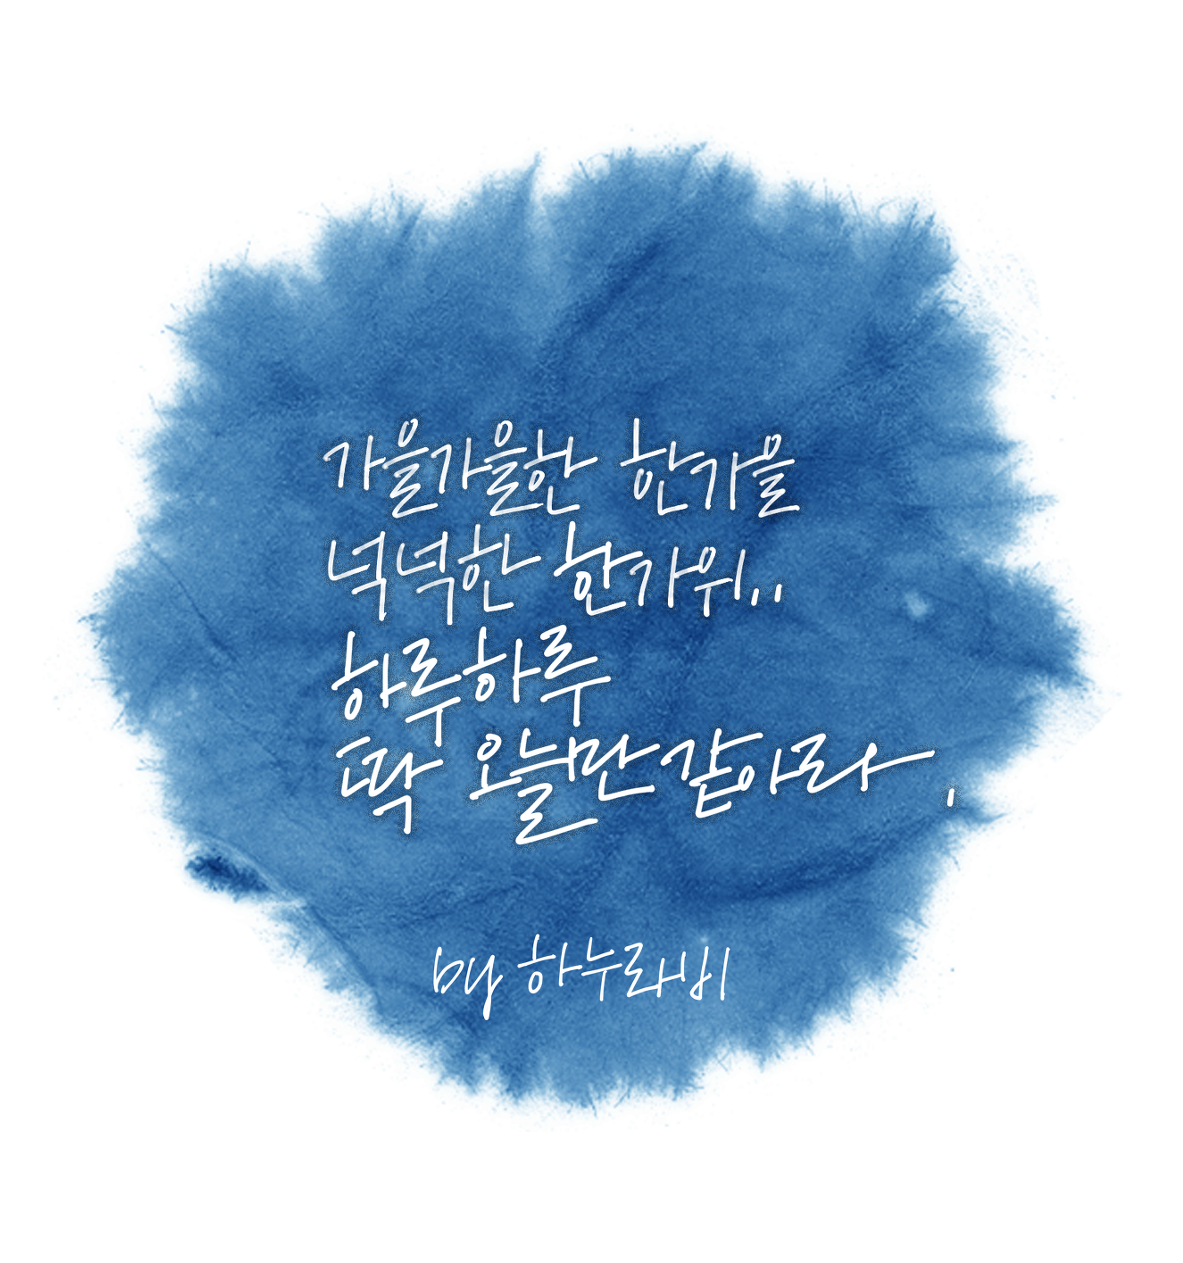 가을가을한 한가을
넉넉한 한가위..
하루하루
딱 오늘만 같아라.
by 하누라비